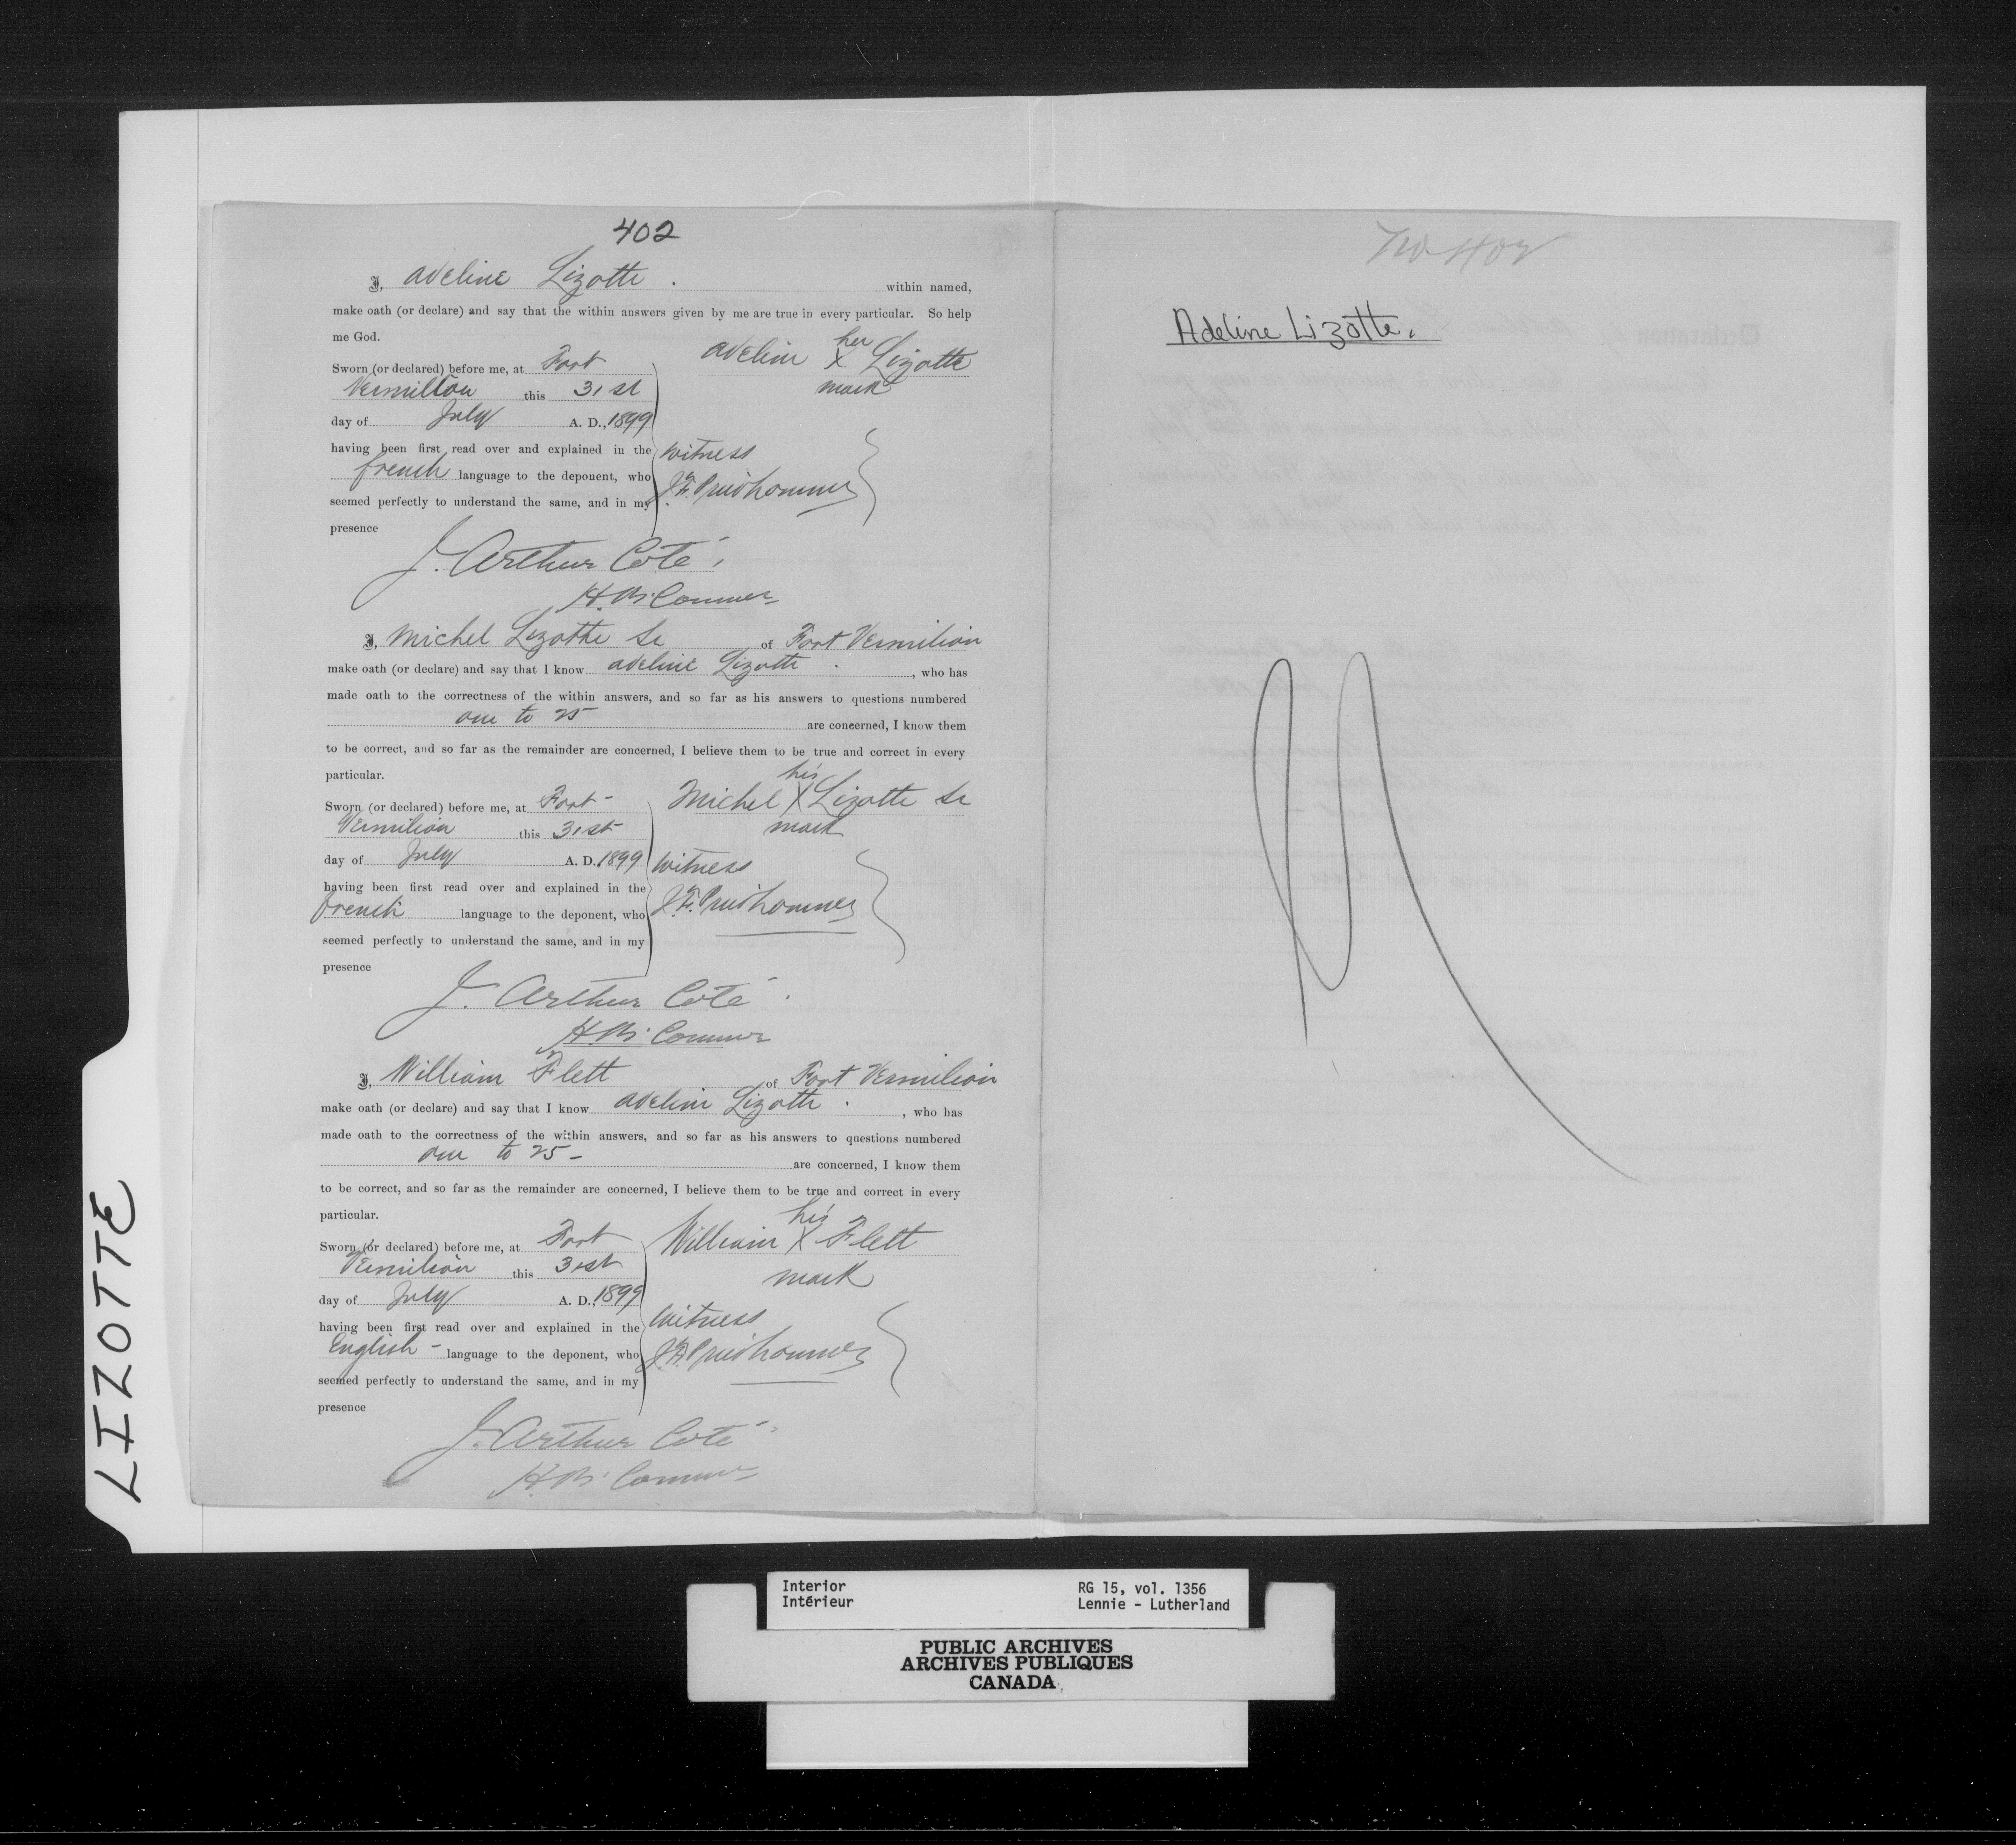 402
I, Adeline Lizotte. within named,
make oath (or declare) and say that the within answers given by me are true in every particular. So help
me God.
Sworn (or declared) before me, at Fort
Vermilion this 31st
day of July A. D., 1899
having been first read over and explained in the
french language to the deponent, who
seemed perfectly to understand the same, and in my
presence
her
Adeline X Lizotte
mark
Witness
J. F. Prudhomme
J. Arthur Coté,
I, Michel Lizotte Sr of Fort Vermilion
make oath (or declare) and say that I know Adeline Lizotte. , who has
made oath to the correctness of the within answers, and so far as his answers to questions numbered
one to 25 are concerned, I know them
to be correct, and so far as the remainder are concerned, I believe them to be true and correct in every
particular.
Sworn (or declared) before me, at Fort
Vermilion this 31st
day of July A. D. 1899
having been first read over and explained in the
french language to the deponent, who
seemed perfectly to understand the same, and in my
presence
his
Michel X Lizotte Sr
mark
Witness
J. F. Prudhomme
J. Arthur Coté.
I, William Flett of Fort Vermilion
make oath (or declare) and say that I know Adeline Lizotte. , who has
made oath to the correctness of the within answers, and so far as his answers to questions numbered
one to 25 – are concerned, I know them
to be correct, and so far as the remainder are concerned, I believe them to be true and correct in every
particular.
Sworn (or declared) before me, at Fort
Vermilion this 31st
day of July A. D., 1899
having been first read over and explained in the
English – language to the deponent, who
seemed perfectly to understand the same, and in my
presence
his
William X Flett
mark
Witness
J. F. Prudhomme
J. Arthur Coté
No 402
Adeline Lizotte.
LIZOTTE
Interior
Intérieur
RG 15, vol. 1356
Lennie - Lutherland
PUBLIC ARCHIVES
ARCHIVES PUBLIQUES
CANADA